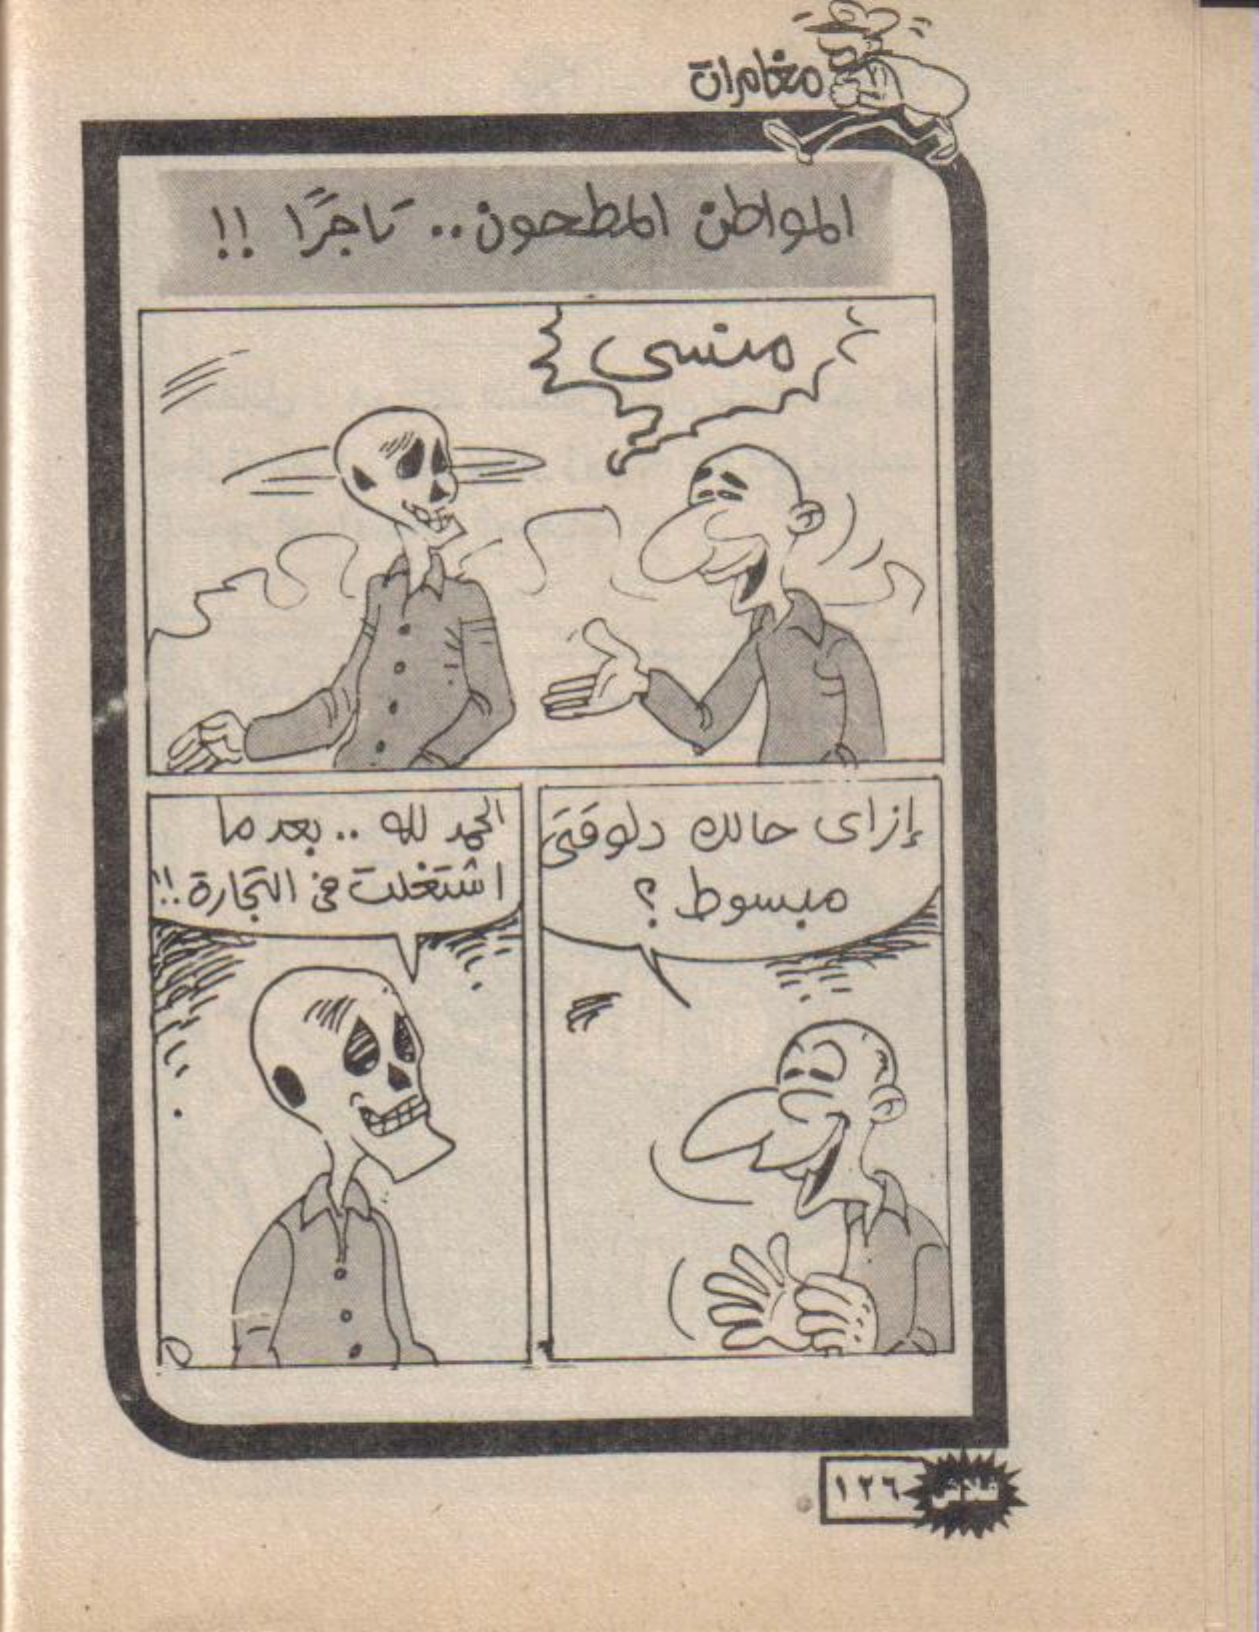 مغامرات
المواطن المطحون.. تَاجِرًا !!
منسى
إزاى حالك دلوقتى
مبسوط ؟
الحمد لله .. بعد ما
اشتغلت فى التجارة !!
فلاش ١٢٦